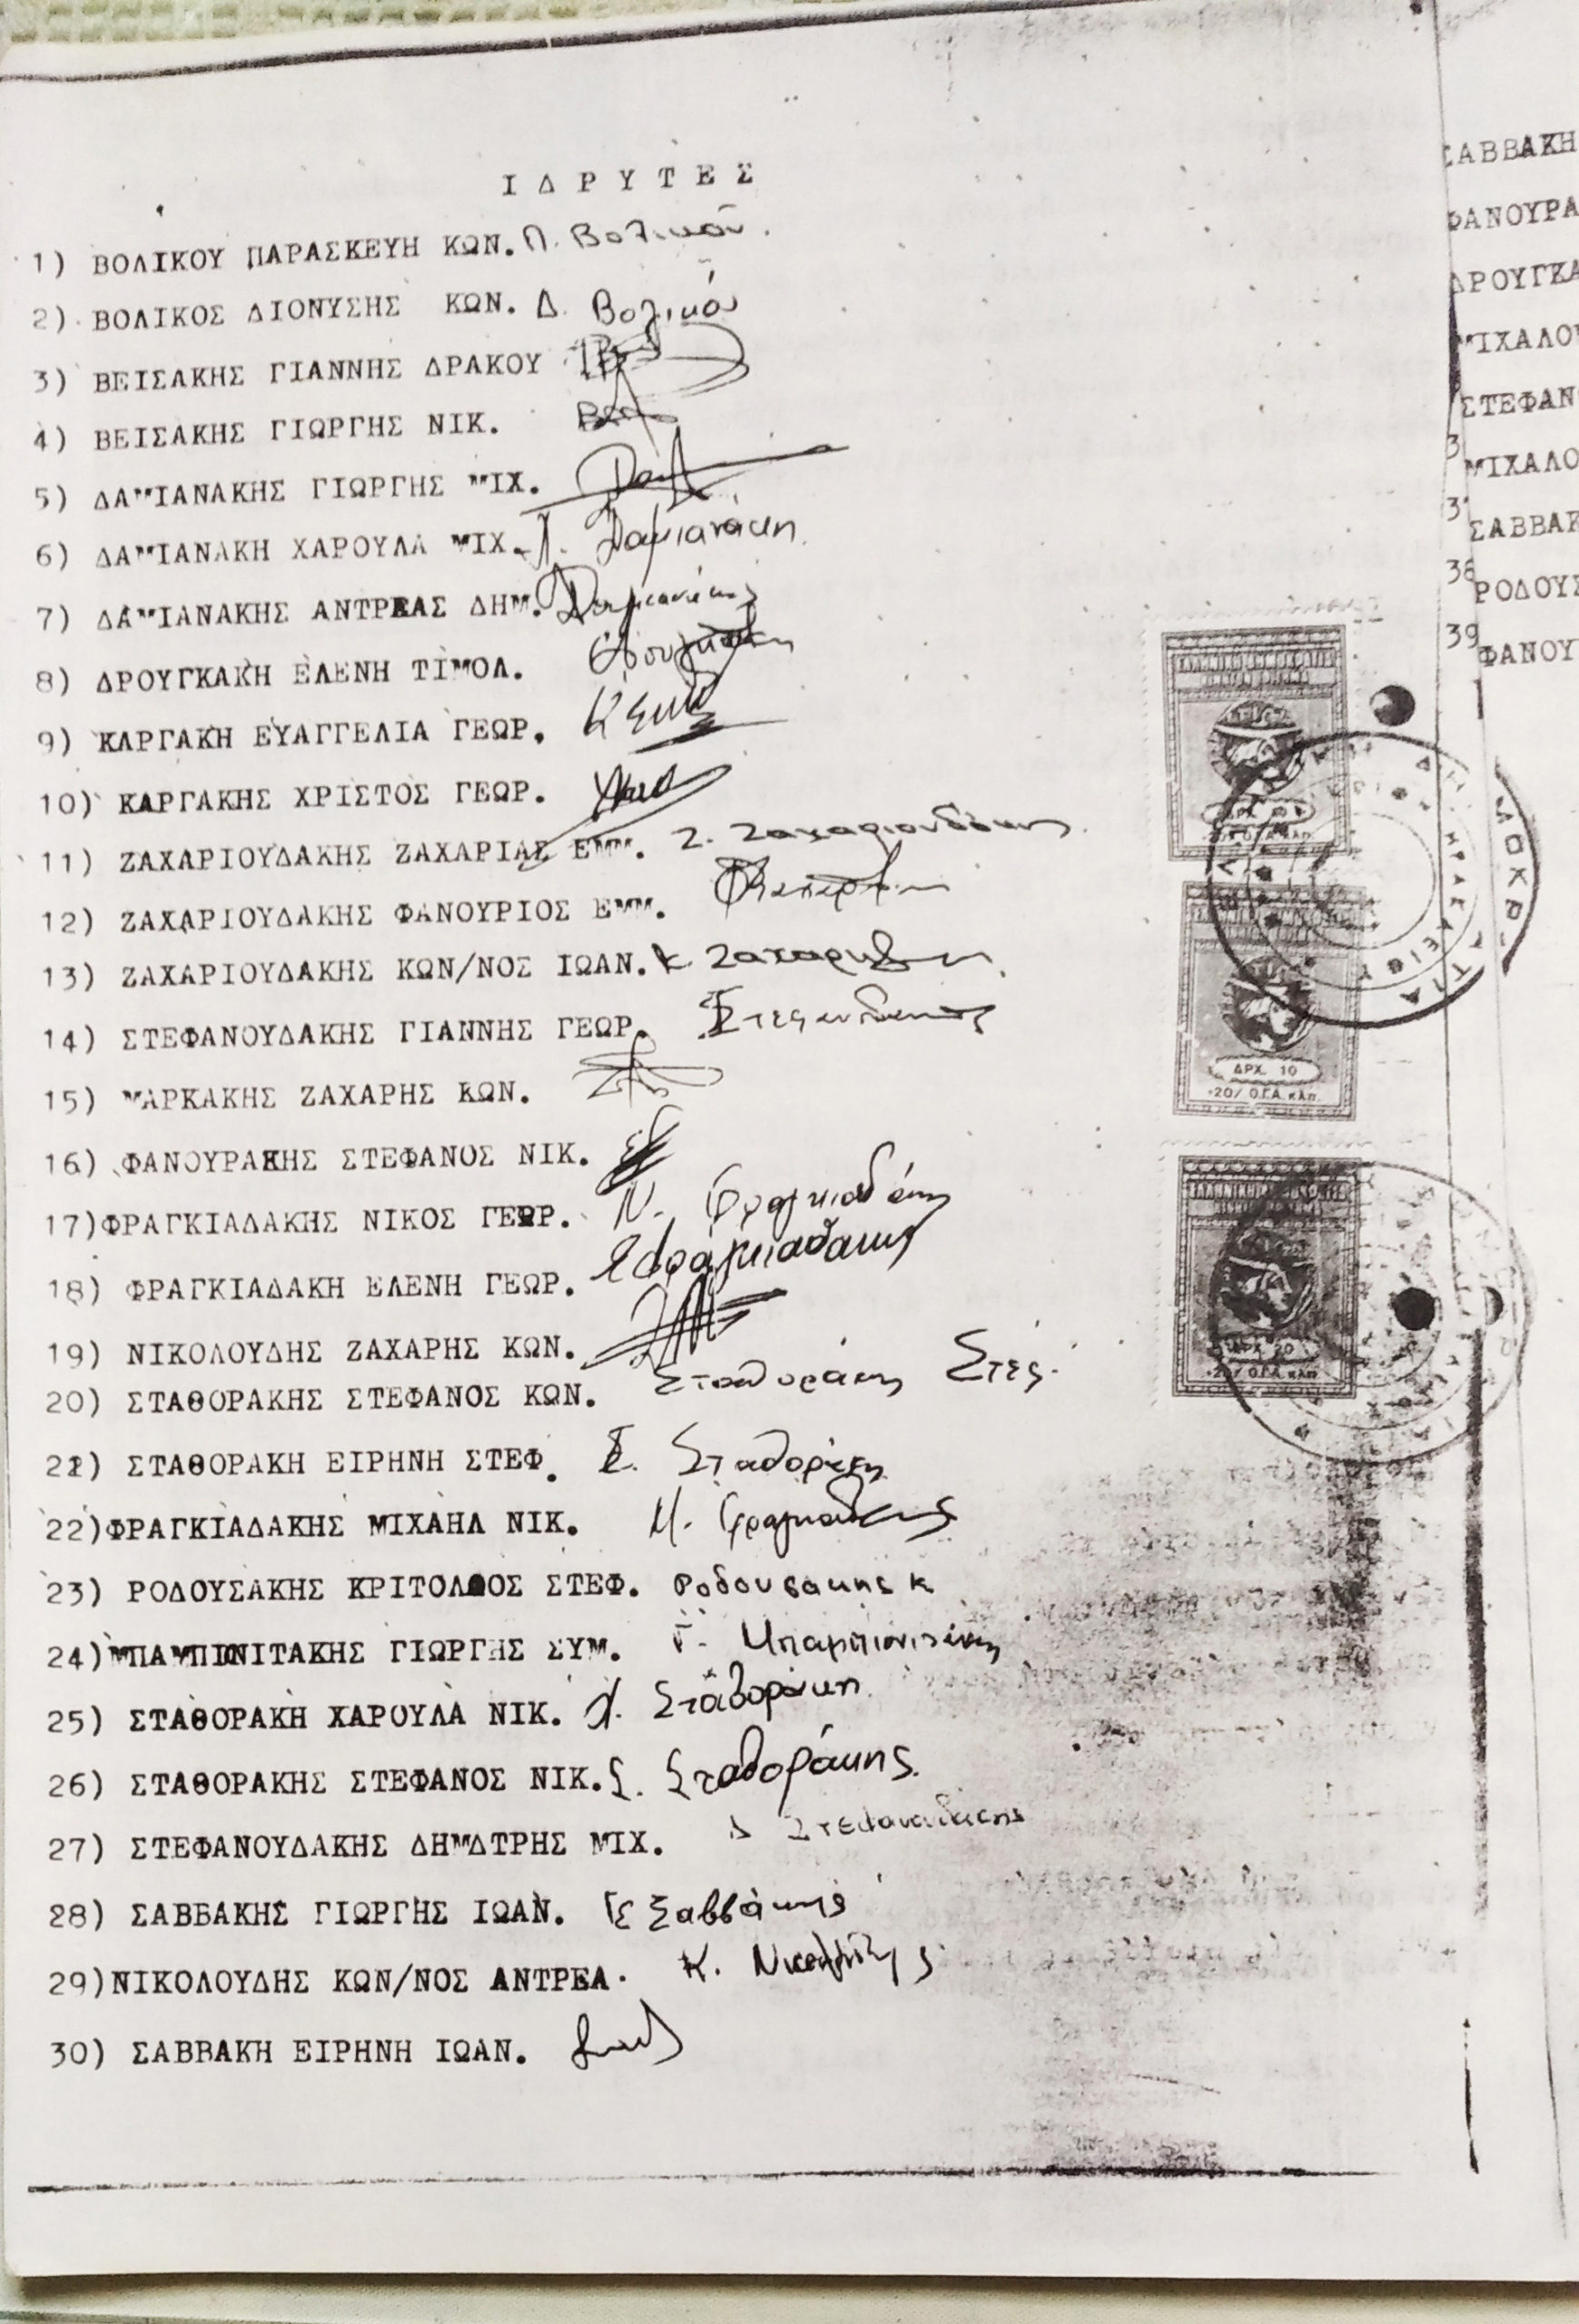 ΙΔΡΥΤΕΣ
1) ΒΟΛΙΚΟΥ ΠΑΡΑΣΚΕΥΗ ΚΩΝ. Π. Βολικού.
2) ΒΟΛΙΚΟΣ ΔΙΟΝΥΣΗΣ ΚΩΝ. Δ. Βολικό
3) ΒΕΙΣΑΚΗΣ ΓΙΑΝΝΗΣ ΔΡΑΚΟΥ
4) ΒΕΙΣΑΚΗΣ ΓΙΩΡΓΗΣ ΝΙΚ.
5) ΔΑΜΙΑΝΑΚΗΣ ΓΙΩΡΓΗΣ ΜΙΧ.
6) ΔΑΜΙΑΝΑΚΗ ΧΑΡΟΥΛΑ ΜΙΧ. Δαμιανάκη
7) ΔΑΜΙΑΝΑΚΗΣ ΑΝΤΡΕΑΣ ΔΗΜ. Δαμιανάκης
8) ΔΡΟΥΓΚΑΚΗ ΕΛΕΝΗ ΤΙΜΟΛ.
9) ΚΑΡΓΑΚΗ ΕΥΑΓΓΕΛΙΑ ΓΕΩΡ.
10) ΚΑΡΓΑΚΗΣ ΧΡΙΣΤΟΣ ΓΕΩΡ.
11) ΖΑΧΑΡΙΟΥΔΑΚΗΣ ΖΑΧΑΡΙΑΣ ΕΜΜ. Ζ. Ζαχαριουδάκης
12) ΖΑΧΑΡΙΟΥΔΑΚΗΣ ΦΑΝΟΥΡΙΟΣ ΕΜΜ.
13) ΖΑΧΑΡΙΟΥΔΑΚΗΣ ΚΩΝ/ΝΟΣ ΙΩΑΝ. Κ
14) ΣΤΕΦΑΝΟΥΔΑΚΗΣ ΓΙΑΝΝΗΣ ΓΕΩΡ.
15) ΜΑΡΚΑΚΗΣ ΖΑΧΑΡΗΣ ΚΩΝ.
16) ΦΑΝΟΥΡΑΚΗΣ ΣΤΕΦΑΝΟΣ ΝΙΚ.
17) ΦΡΑΓΚΙΑΔΑΚΗΣ ΝΙΚΟΣ ΓΕΩΡ. Ν. Φραγκιαδάκης
18) ΦΡΑΓΚΙΑΔΑΚΗ ΕΛΕΝΗ ΓΕΩΡ. Ε Φραγκιαδάκη
19) ΝΙΚΟΛΟΥΔΗΣ ΖΑΧΑΡΗΣ ΚΩΝ.
20) ΣΤΑΘΟΡΑΚΗΣ ΣΤΕΦΑΝΟΣ ΚΩΝ. Σταθοράκης Στεφ.
21) ΣΤΑΘΟΡΑΚΗ ΕΙΡΗΝΗ ΣΤΕΦ. Ε. Σταθοράκη
22) ΦΡΑΓΚΙΑΔΑΚΗΣ ΜΙΧΑΗΛ ΝΙΚ. Μ. Φραγκιαδάκης
23) ΡΟΔΟΥΣΑΚΗΣ ΚΡΙΤΟΛΑΟΣ ΣΤΕΦ. Ροδουσακης κ
24) ΜΠΑΜΠΙΟΝΙΤΑΚΗΣ ΓΙΩΡΓΗΣ ΣΥΜ. Γ. Μπαμπιονιτάκης
25) ΣΤΑΘΟΡΑΚΗ ΧΑΡΟΥΛΑ ΝΙΚ. Χ. Σταθοράκη
26) ΣΤΑΘΟΡΑΚΗΣ ΣΤΕΦΑΝΟΣ ΝΙΚ. Σ. Σταθοράκης.
27) ΣΤΕΦΑΝΟΥΔΑΚΗΣ ΔΗΜΔΤΡΗΣ ΜΙΧ. Δ Στεφανουδάκης
28) ΣΑΒΒΑΚΗΣ ΓΙΩΡΓΗΣ ΙΩΑΝ. Γε Σαββάκης
29) ΝΙΚΟΛΟΥΔΗΣ ΚΩΝ/ΝΟΣ ΑΝΤΡΕΑ. Κ. Νικολούδης
30) ΣΑΒΒΑΚΗ ΕΙΡΗΝΗ ΙΩΑΝ.
ΔΡΧ. 10
+20/ Ο.Γ.Α. κλπ.
ΔΡΧ 20
ΗΡΑΚΛΕΙΟΥ
ΣΑΒΒΑΚΗ
ΦΑΝΟΥΡΑ
ΔΡΟΥΓΚΑ
ΜΙΧΑΛΟ
ΣΤΕΦΑΝ
ΜΙΧΑΛΟ
ΣΑΒΒΑΚ
38 ΡΟΔΟΥΣ
39 ΦΑΝΟΥ